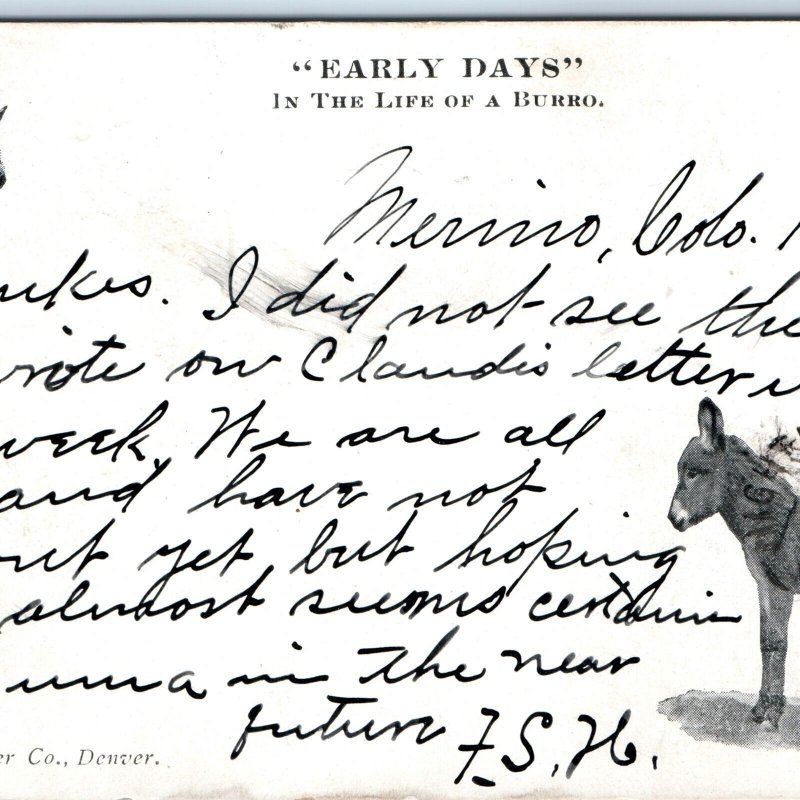 “EARLY DAYS”
IN THE LIFE OF A BURRO.
Merino, Colo.
ukes. I did not see the
wrote on Claudis letter
week. We are all
and have not
yet but hoping
almost seems certain
in the near
future F.S.H.
er Co., Denver.